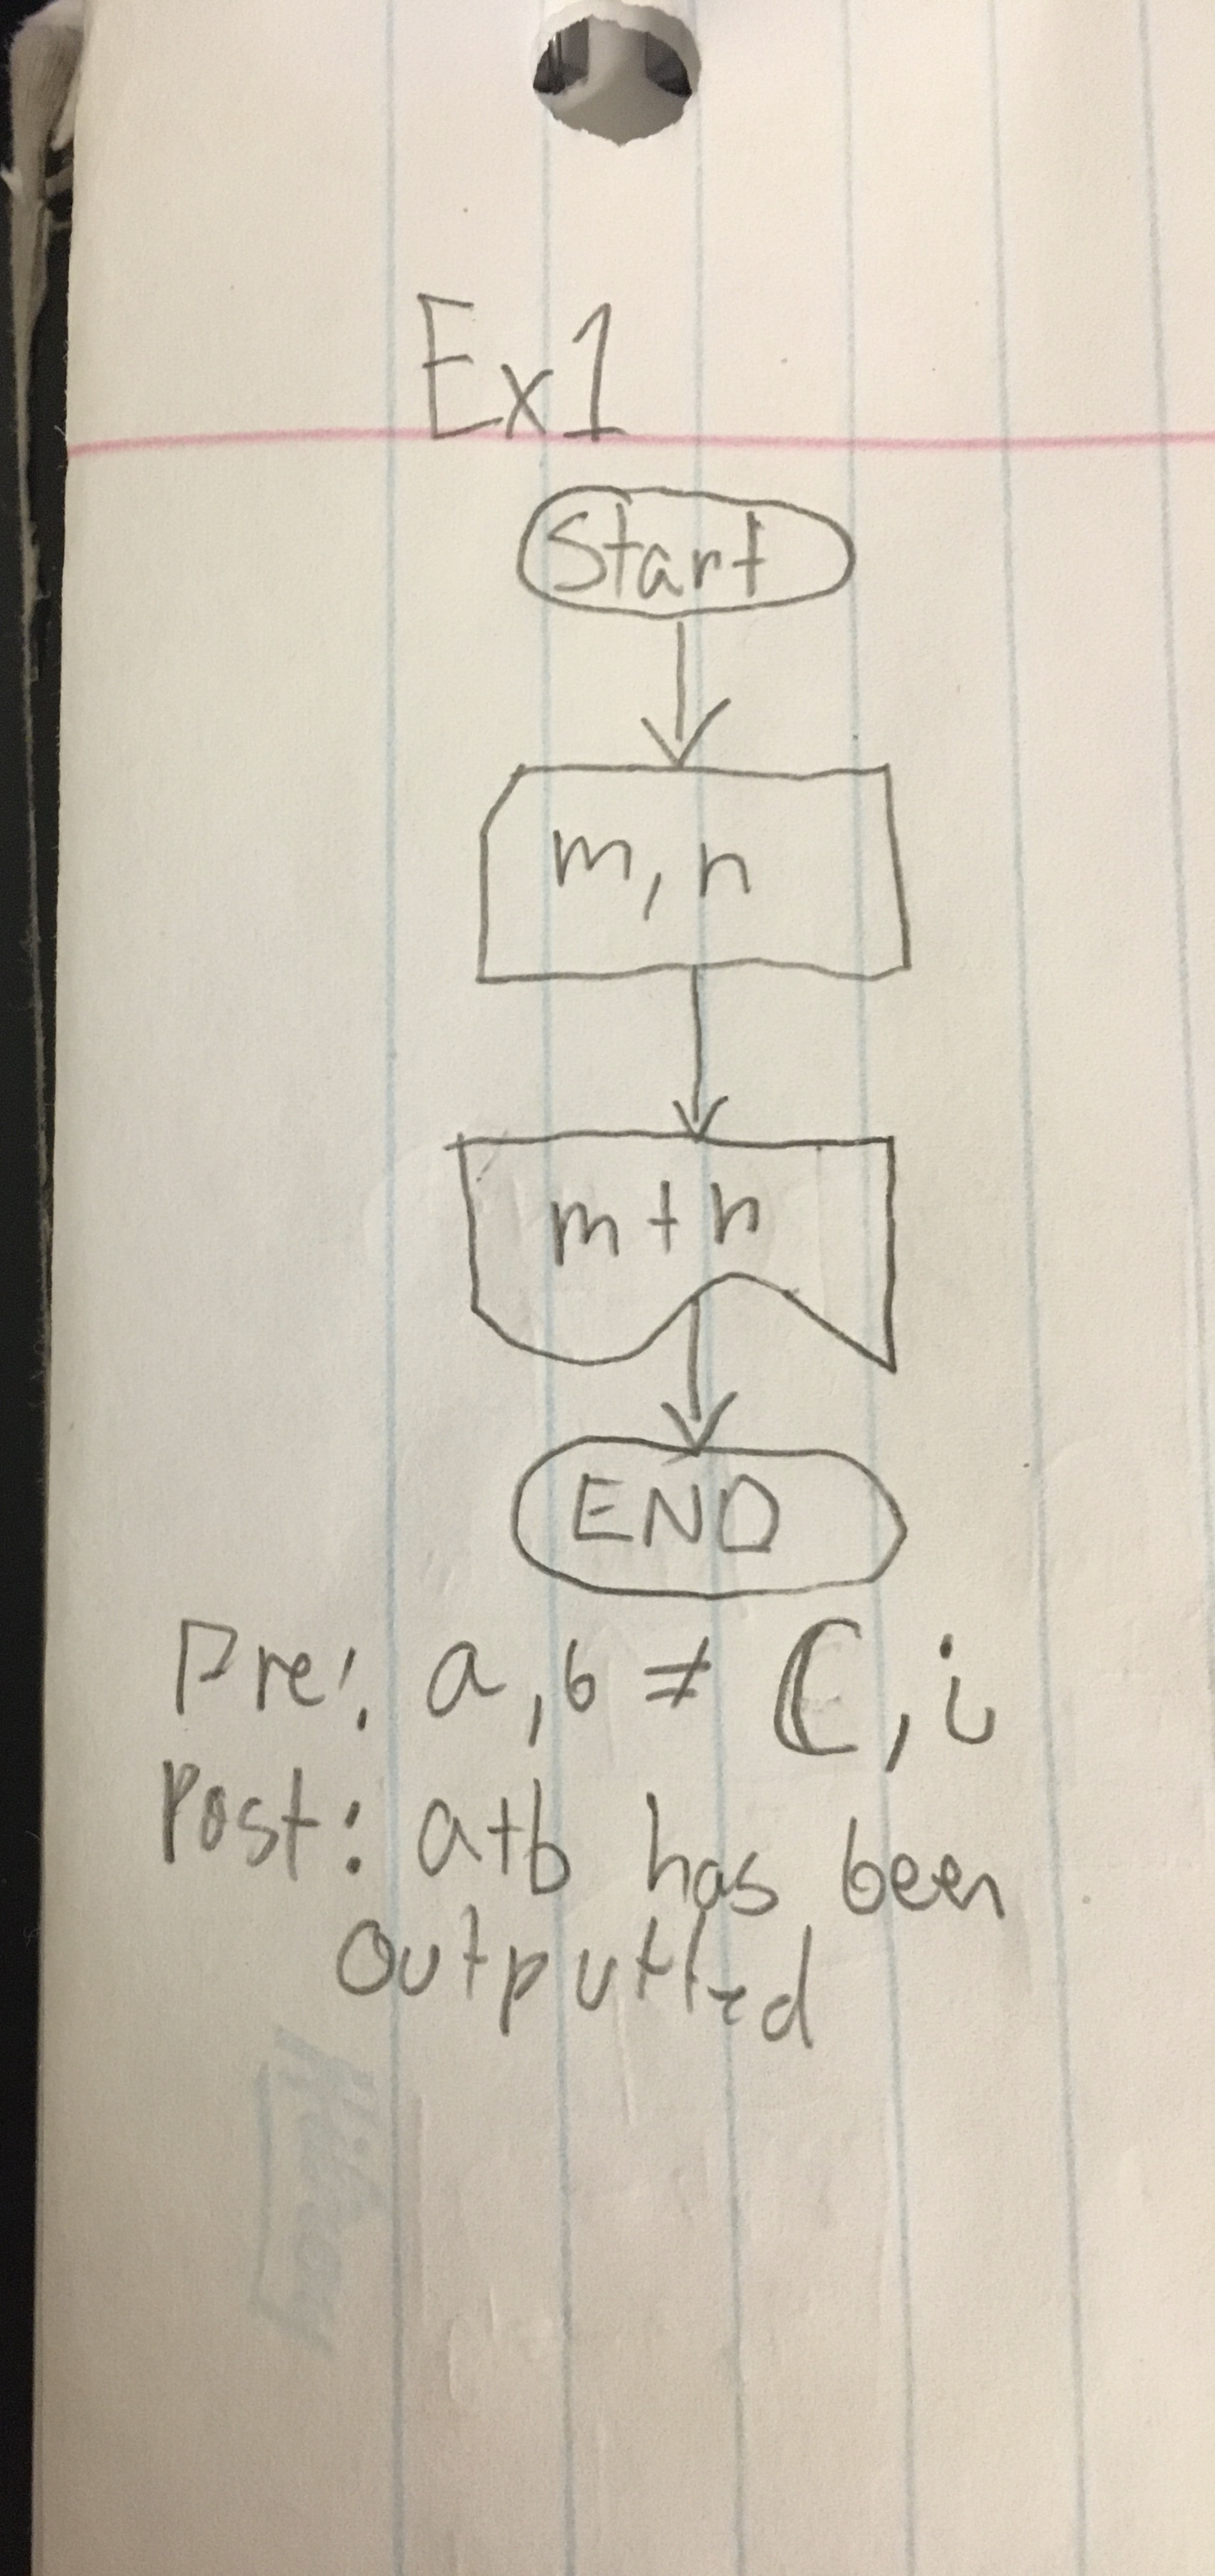 Ex1
Start
m, n
m + n
END
Pre: a, b ≠ ℂ, i
Post: a+b has been
outputted